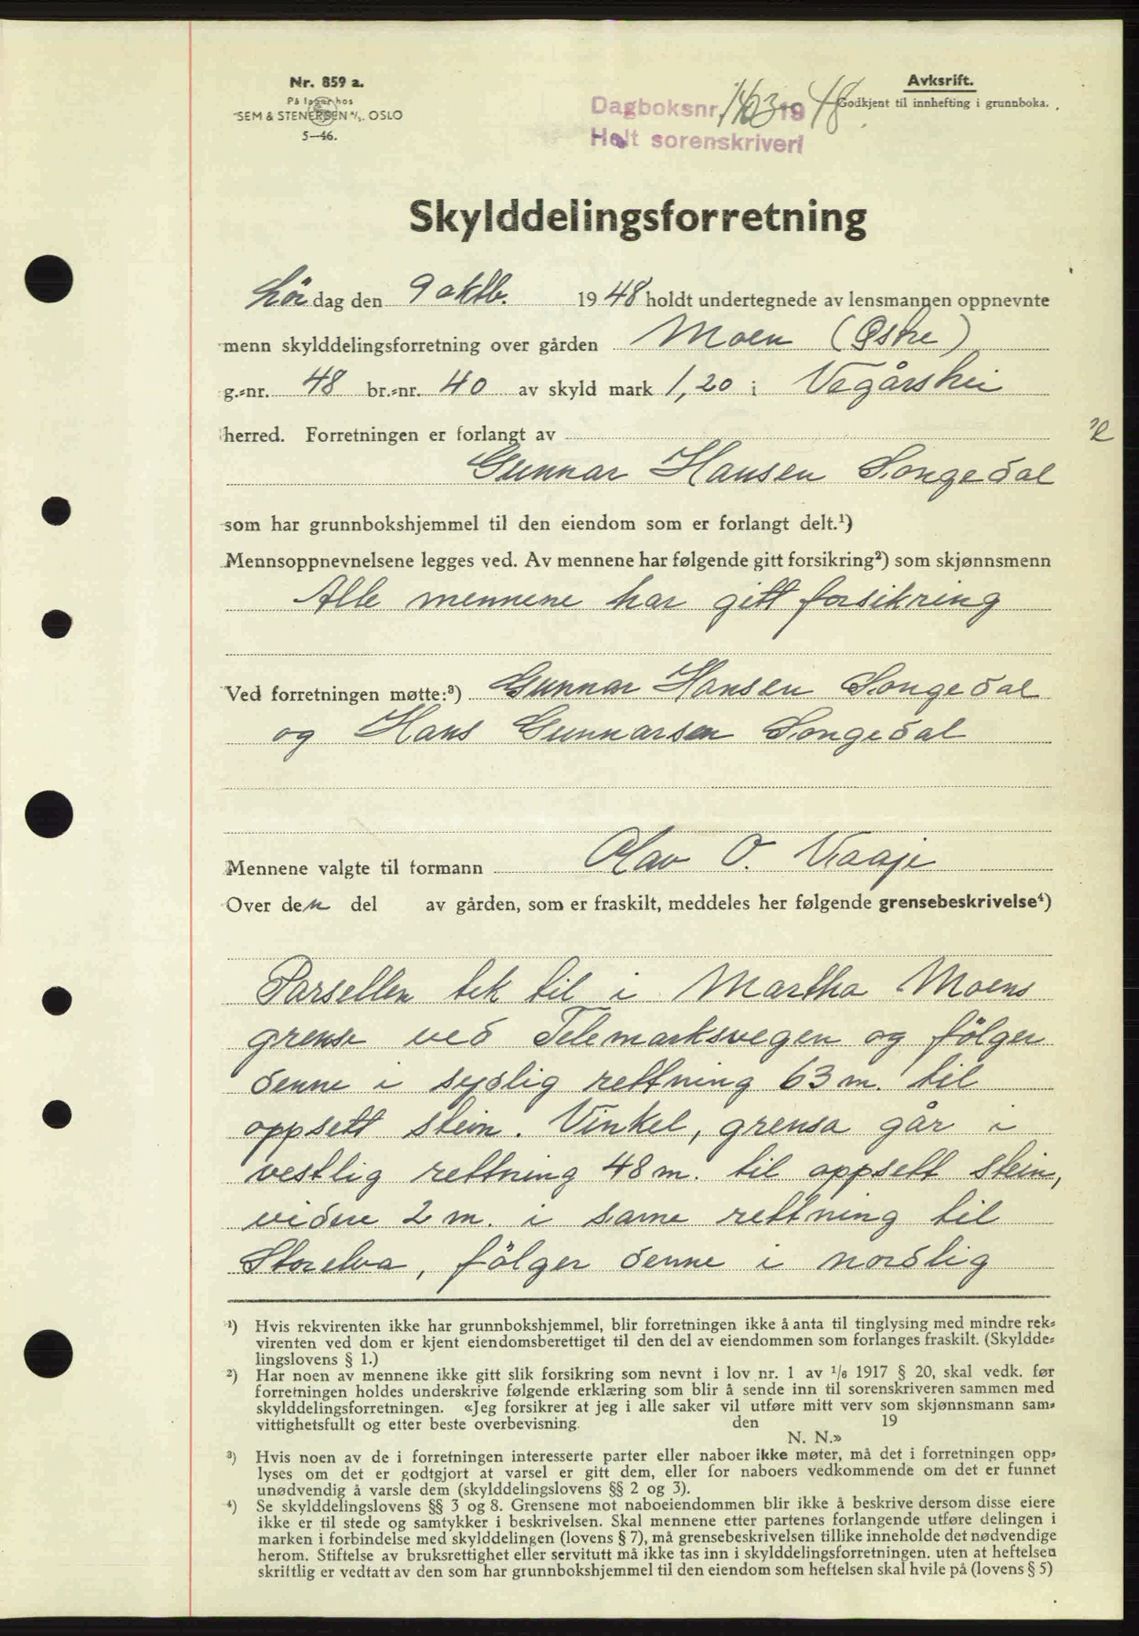 Nr. 859 a.
På lager hos
SEM & STENERSEN A/S. OSLO
5—46.
Avksrift.
Godkjent til innhefting i grunnboka.
Dagboksnr. 1163 19 48
Holt sorenskriveri
Skylddelingsforretning
Lör dag den 9 oktb. 19 48 holdt undertegnede av lensmannen oppnevnte
menn skylddelingsforretning over gården Moen (Östre)
g.-nr. 48 br.-nr. 40 av skyld mark 1,20 i Vegårshei
herred. Forretningen er forlangt av
Gunnar Hansen Songedal
som har grunnbokshjemmel til den eiendom som er forlangt delt.¹)
Mennsoppnevnelsene legges ved. Av mennene har følgende gitt forsikring²) som skjønnsmenn
Alle mennene har gitt forsikring
Ved forretningen møtte:³) Gunnar Hansen Songedal
og Hans Gunnarsen Songedal
Mennene valgte til formann Olav O. Vaaje
Over den del av gården, som er fraskilt, meddeles her følgende grensebeskrivelse⁴)
Parsellen tek til i Martha Moens
grense ved Telemarksvegen og fölger
denne i sydlig rettning 63 m. til
oppsett stein. Vinkel, grensa går i
vestlig rettning 48 m. til oppsett stein,
videre 2 m. i same rettning til
Storelva, fölger denne i nordlig
¹) Hvis rekvirenten ikke har grunnbokshjemmel, blir forretningen ikke å anta til tinglysing med mindre rek-
virenten ved dom er kjent eiendomsberettiget til den del av eiendommen som forlanges fraskilt. (Skyldde-
lingslovens § 1.)
²) Har noen av mennene ikke gitt slik forsikring som nevnt i lov nr. 1 av 1/6 1917 § 20, skal vedk. før
forretningen holdes underskrive følgende erklæring som blir å sende inn til sorenskriveren sammen med
skylddelingsforretningen. «Jeg forsikrer at jeg i alle saker vil utføre mitt verv som skjønnsmann sam-
vittighetsfullt og etter beste overbevisning. den 19
N. N.»
³) Hvis noen av de i forretningen interesserte parter eller naboer ikke møter, må det i forretningen opp-
lyses om det er godtgjort at varsel er gitt dem, eller for naboers vedkommende om det er funnet
unødvendig å varsle dem (skylddelingslovens §§ 2 og 3).
⁴) Se skylddelingslovens §§ 3 og 8. Grensene mot naboeiendommen blir ikke å beskrive dersom disse eiere
ikke er til stede og samtykker i beskrivelsen. Skal mennene etter partenes forlangende utføre delingen i
marken i forbindelse med skylddelingen (lovens § 7), må grensebeskrivelsen tillike inneholde det nødvendige
herom. Stiftelse av bruksrettighet eller servitutt må ikke tas inn i skylddelingsforretningen, uten at heftelsen
skriftlig er vedtatt av den som har grunnbokshjemmel til den eiendom som heftelsen skal hvile på (lovens § 5)